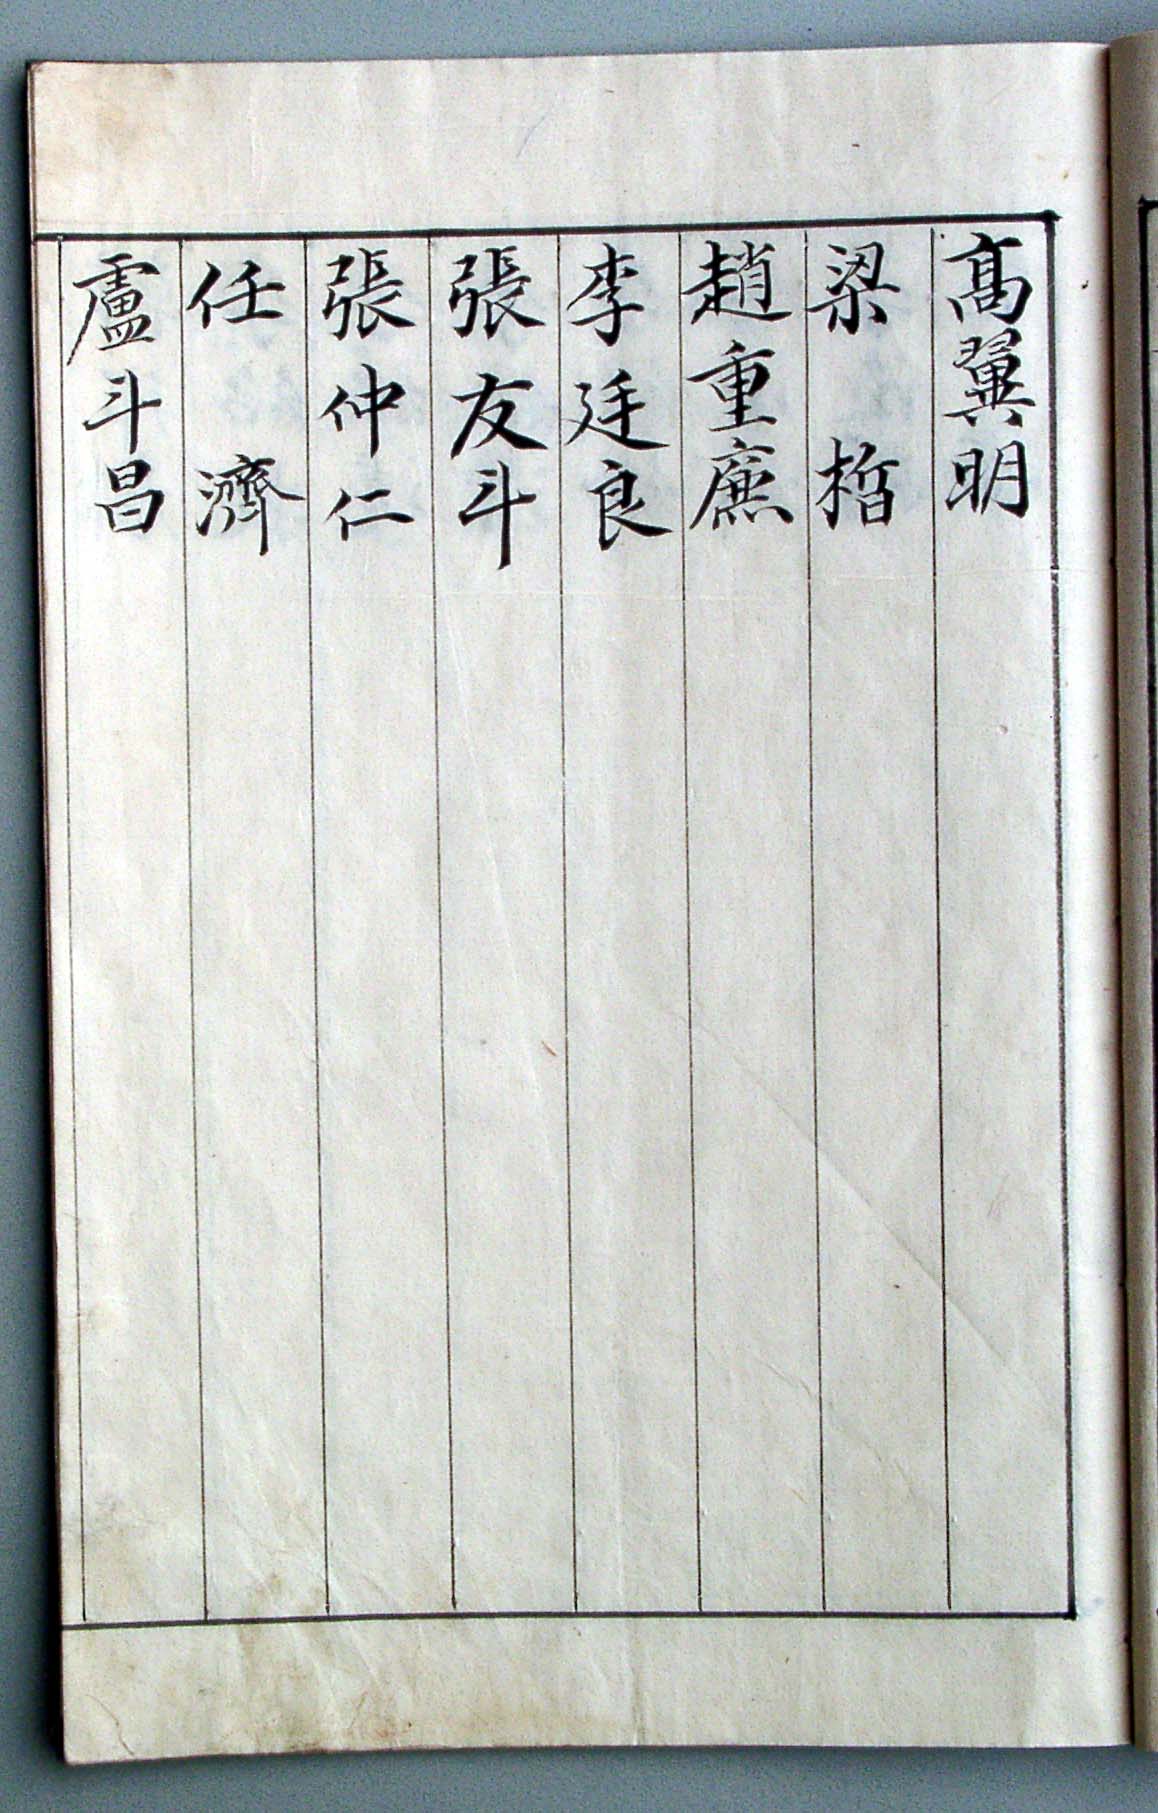 高翼明
梁楷
趙重廉
李廷良
張友斗
張仲仁
任濟
盧斗昌